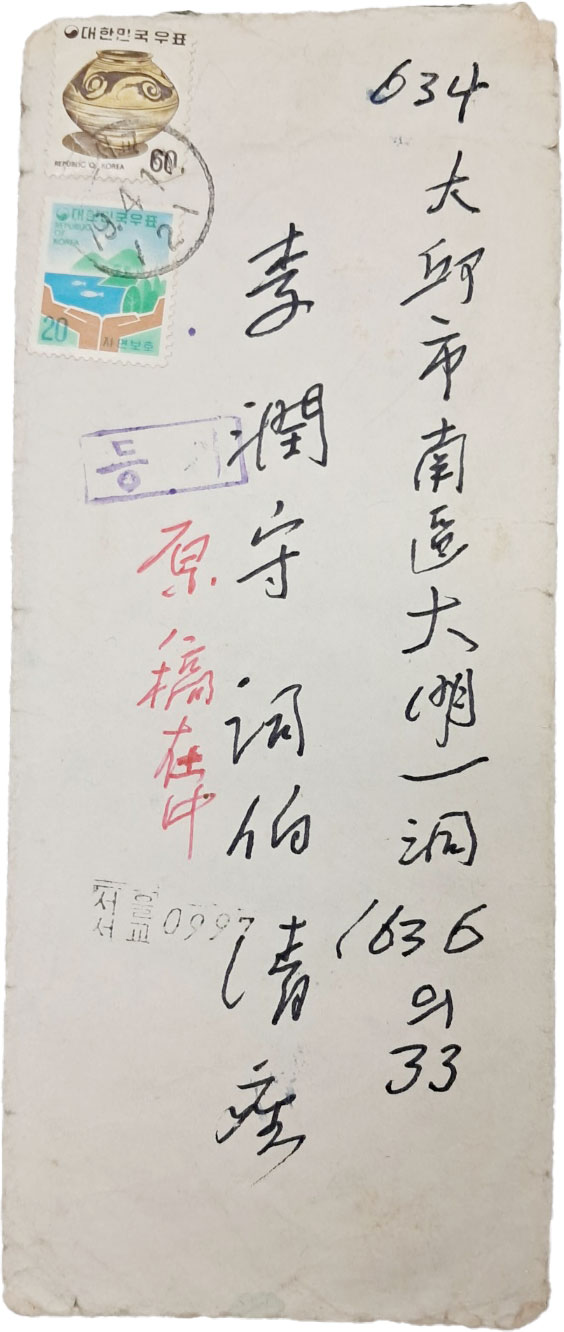 634
大邱市南區大明一洞
1636
의
33
李潤守 詞伯 清座
原稿在中
대한민국우표
REPUBLIC OF KOREA
60
대한민국우표
REPUBLIC
OF
KOREA
20
자연보호
79.4.1
등기
서울
서교
0997